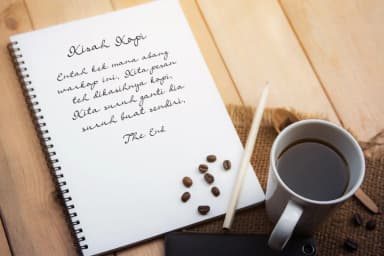 Kisah Kopi
Entah kek mana abang
warkop ini, Kita pesan
teh dikasihnya kopi,
Kita suruh ganti dia
suruh buat sendiri,
The End